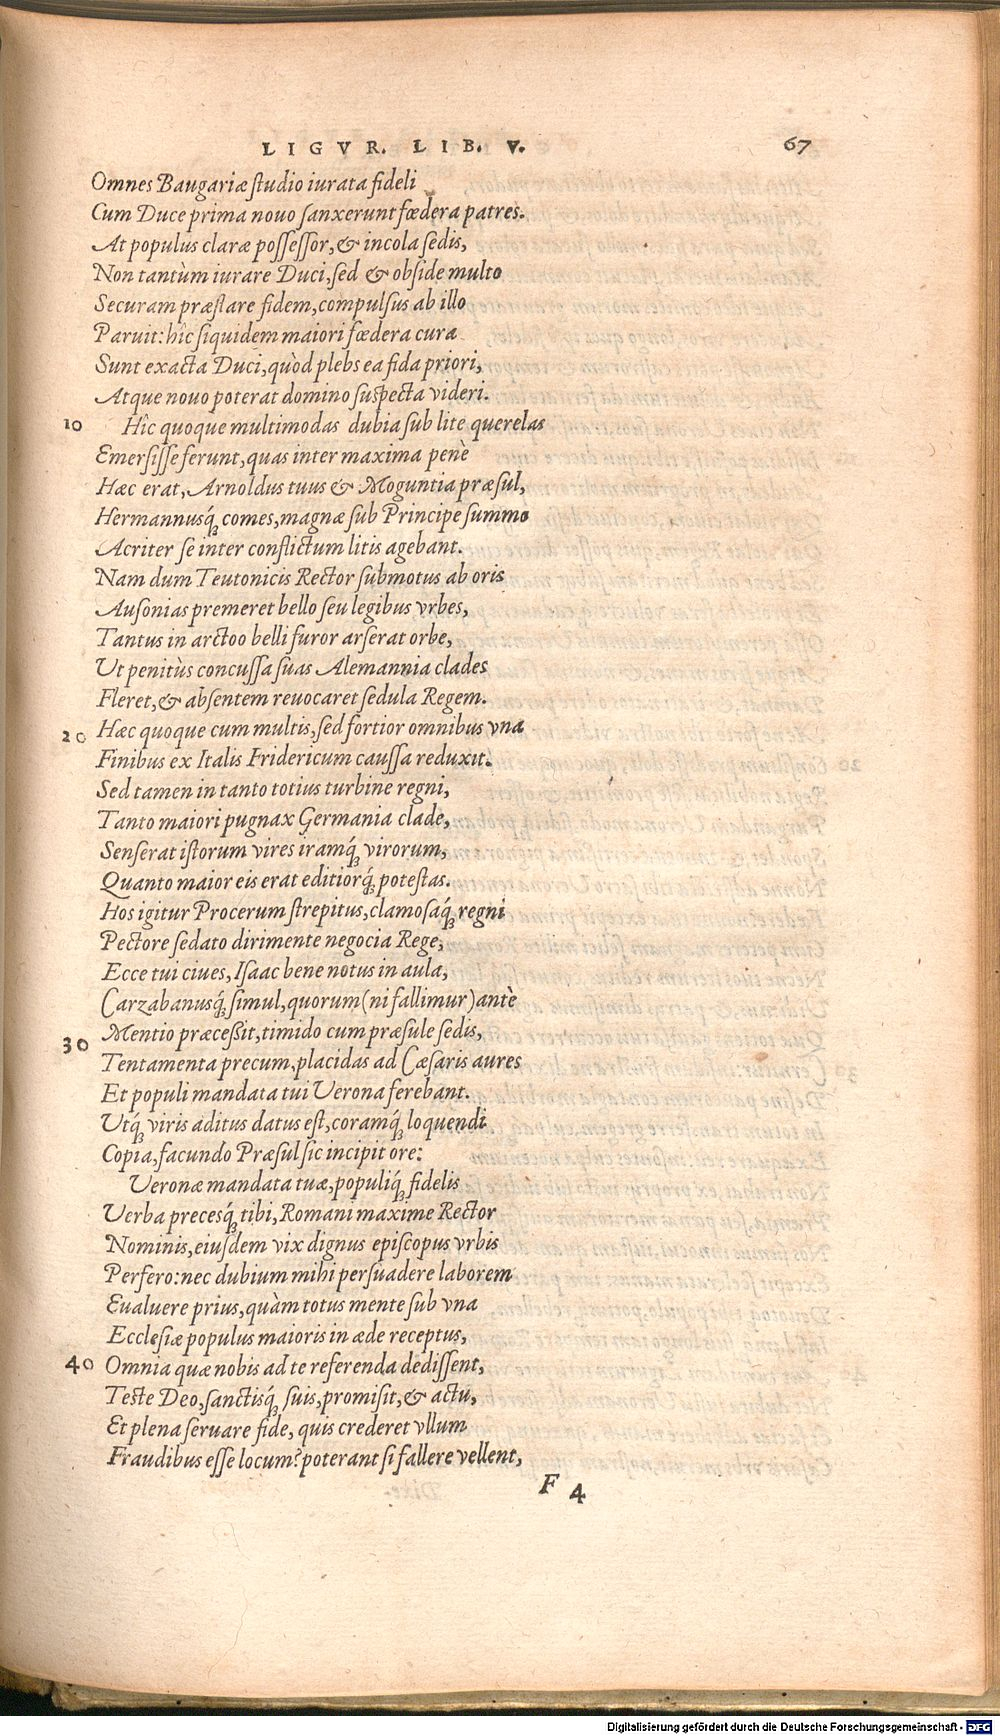 LIGVR. LIB. V. 67
Omnes Baugariæ studio iurata fideli
Cum Duce prima nouo sanxerunt fœdera patres.
At populus claræ possessor, & incola sedis,
Non tantùm iurare Duci, sed & obside multo
Securam præstare fidem, compulsus ab illo
Paruit: hîc siquidem maiori fœdera cura
Sunt exacta Duci, quòd plebs ea fida priori,
Atque nouo poterat domino suspecta videri.
10 Hîc quoque multimodas dubia sub lite querelas
Emersisse ferunt, quas inter maxima penè
Hæc erat, Arnoldus tuus & Moguntia præsul,
Hermannusq́; comes, magnæ sub Principe summo
Acriter se inter conflictum litis agebant.
Nam dum Teutonicis Rector submotus ab oris
Ausonias premeret bello seu legibus vrbes,
Tantus in arctoo belli furor arserat orbe,
Ut penitùs concussa suas Alemannia clades
Fleret, & absentem reuocaret sedula Regem.
20 Hæc quoque cum multis, sed fortior omnibus vna
Finibus ex Italis Fridericum caussa reduxit.
Sed tamen in tanto totius turbine regni,
Tanto maiori pugnax Germania clade,
Senserat istorum vires iramq́; virorum,
Quanto maior eis erat editiorq́; potestas.
Hos igitur Procerum strepitus, clamosaq́; regni
Pectore sedato dirimente negocia Rege,
Ecce tui ciues, Isaac bene notus in aula,
Carzabanusq́; simul, quorum (ni fallimur) antè
30 Mentio præceßit, timido cum præsule sedis,
Tentamenta precum, placidas ad Cæsaris aures
Et populi mandata tui Uerona ferebant.
Utq́; viris aditus datus est, coramq́; loquendi
Copia, facundo Præsul sic incipit ore:
Ueronæ mandata tuæ, populiq́; fidelis
Uerba precesq́; tibi, Romani maxime Rector
Nominis, eiusdem vix dignus episcopus vrbis
Perfero: nec dubium mihi persuadere laborem
Eualuere prius, quàm totus mente sub vna
Ecclesiæ populus maioris in æde receptus,
40 Omnia quæ nobis ad te referenda dedissent,
Teste Deo, sanctisq́; suis, promisit, & actu,
Et plena seruare fide, quis crederet vllum
Fraudibus esse locum? poterant si fallere vellent,
F 4
Digitalisierung gefördert durch die Deutsche Forschungsgemeinschaft - DFG